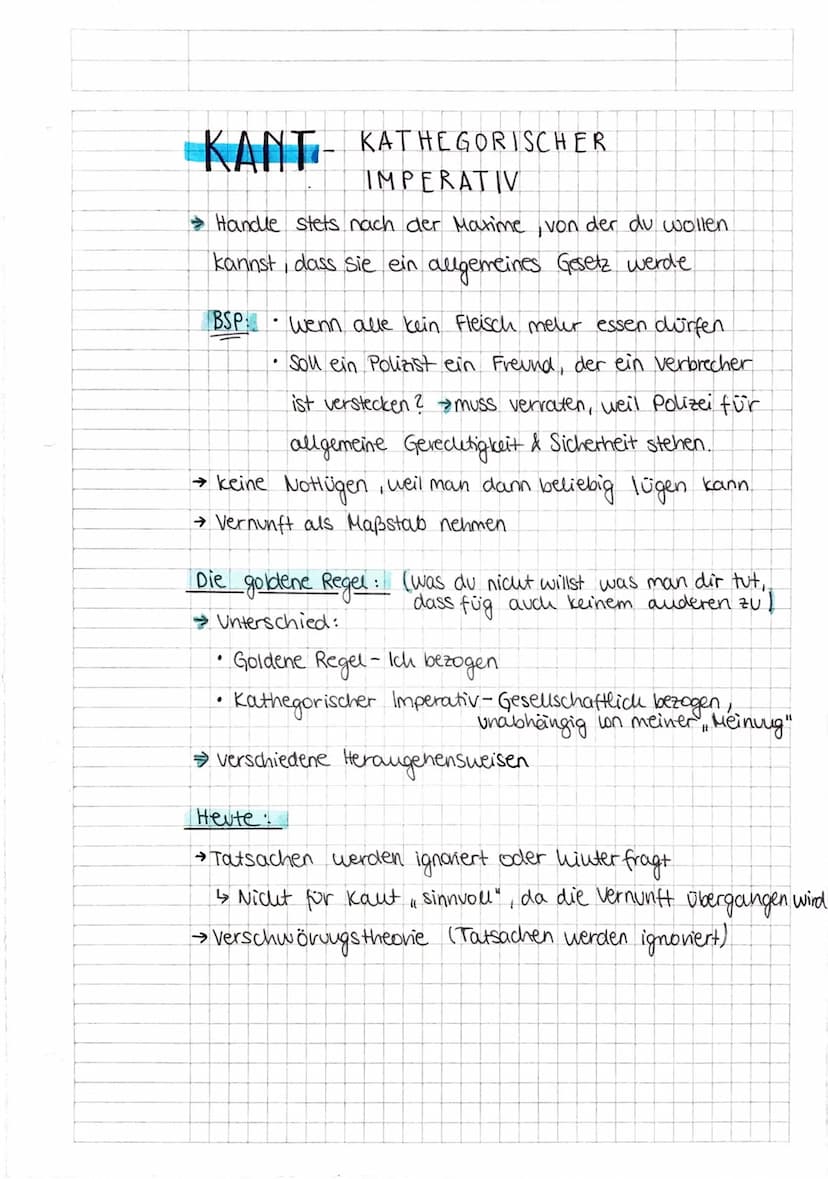 KANT - KATHEGORISCHER
IMPERATIV
→ Handle stets nach der Maxime, von der du wollen
kannst, dass sie ein allgemeines Gesetz werde
BSP: • Wenn alle kein Fleisch mehr essen dürfen
• Soll ein Polizist ein Freund, der ein Verbrecher
ist verstecken? → muss verraten, weil Polizei für
allgemeine Gerechtigkeit & Sicherheit stehen.
→ keine Notlügen, weil man dann beliebig lügen kann
→ Vernunft als Maßstab nehmen
Die goldene Regel: (was du nicht willst was man dir tut,
dass füg auch keinem anderen zu)
→ Unterschied:
• Goldene Regel - Ich bezogen
• Kathegorischer Imperativ - Gesellschaftlich bezogen,
unabhängig von meiner „Meinung"
⇒ verschiedene Herangehensweisen
Heute:
→ Tatsachen werden ignoriert oder hinterfragt
↳ Nicht für Kant „sinnvoll", da die Vernunft übergangen wird
→ Verschwörungstheorie (Tatsachen werden ignoriert)